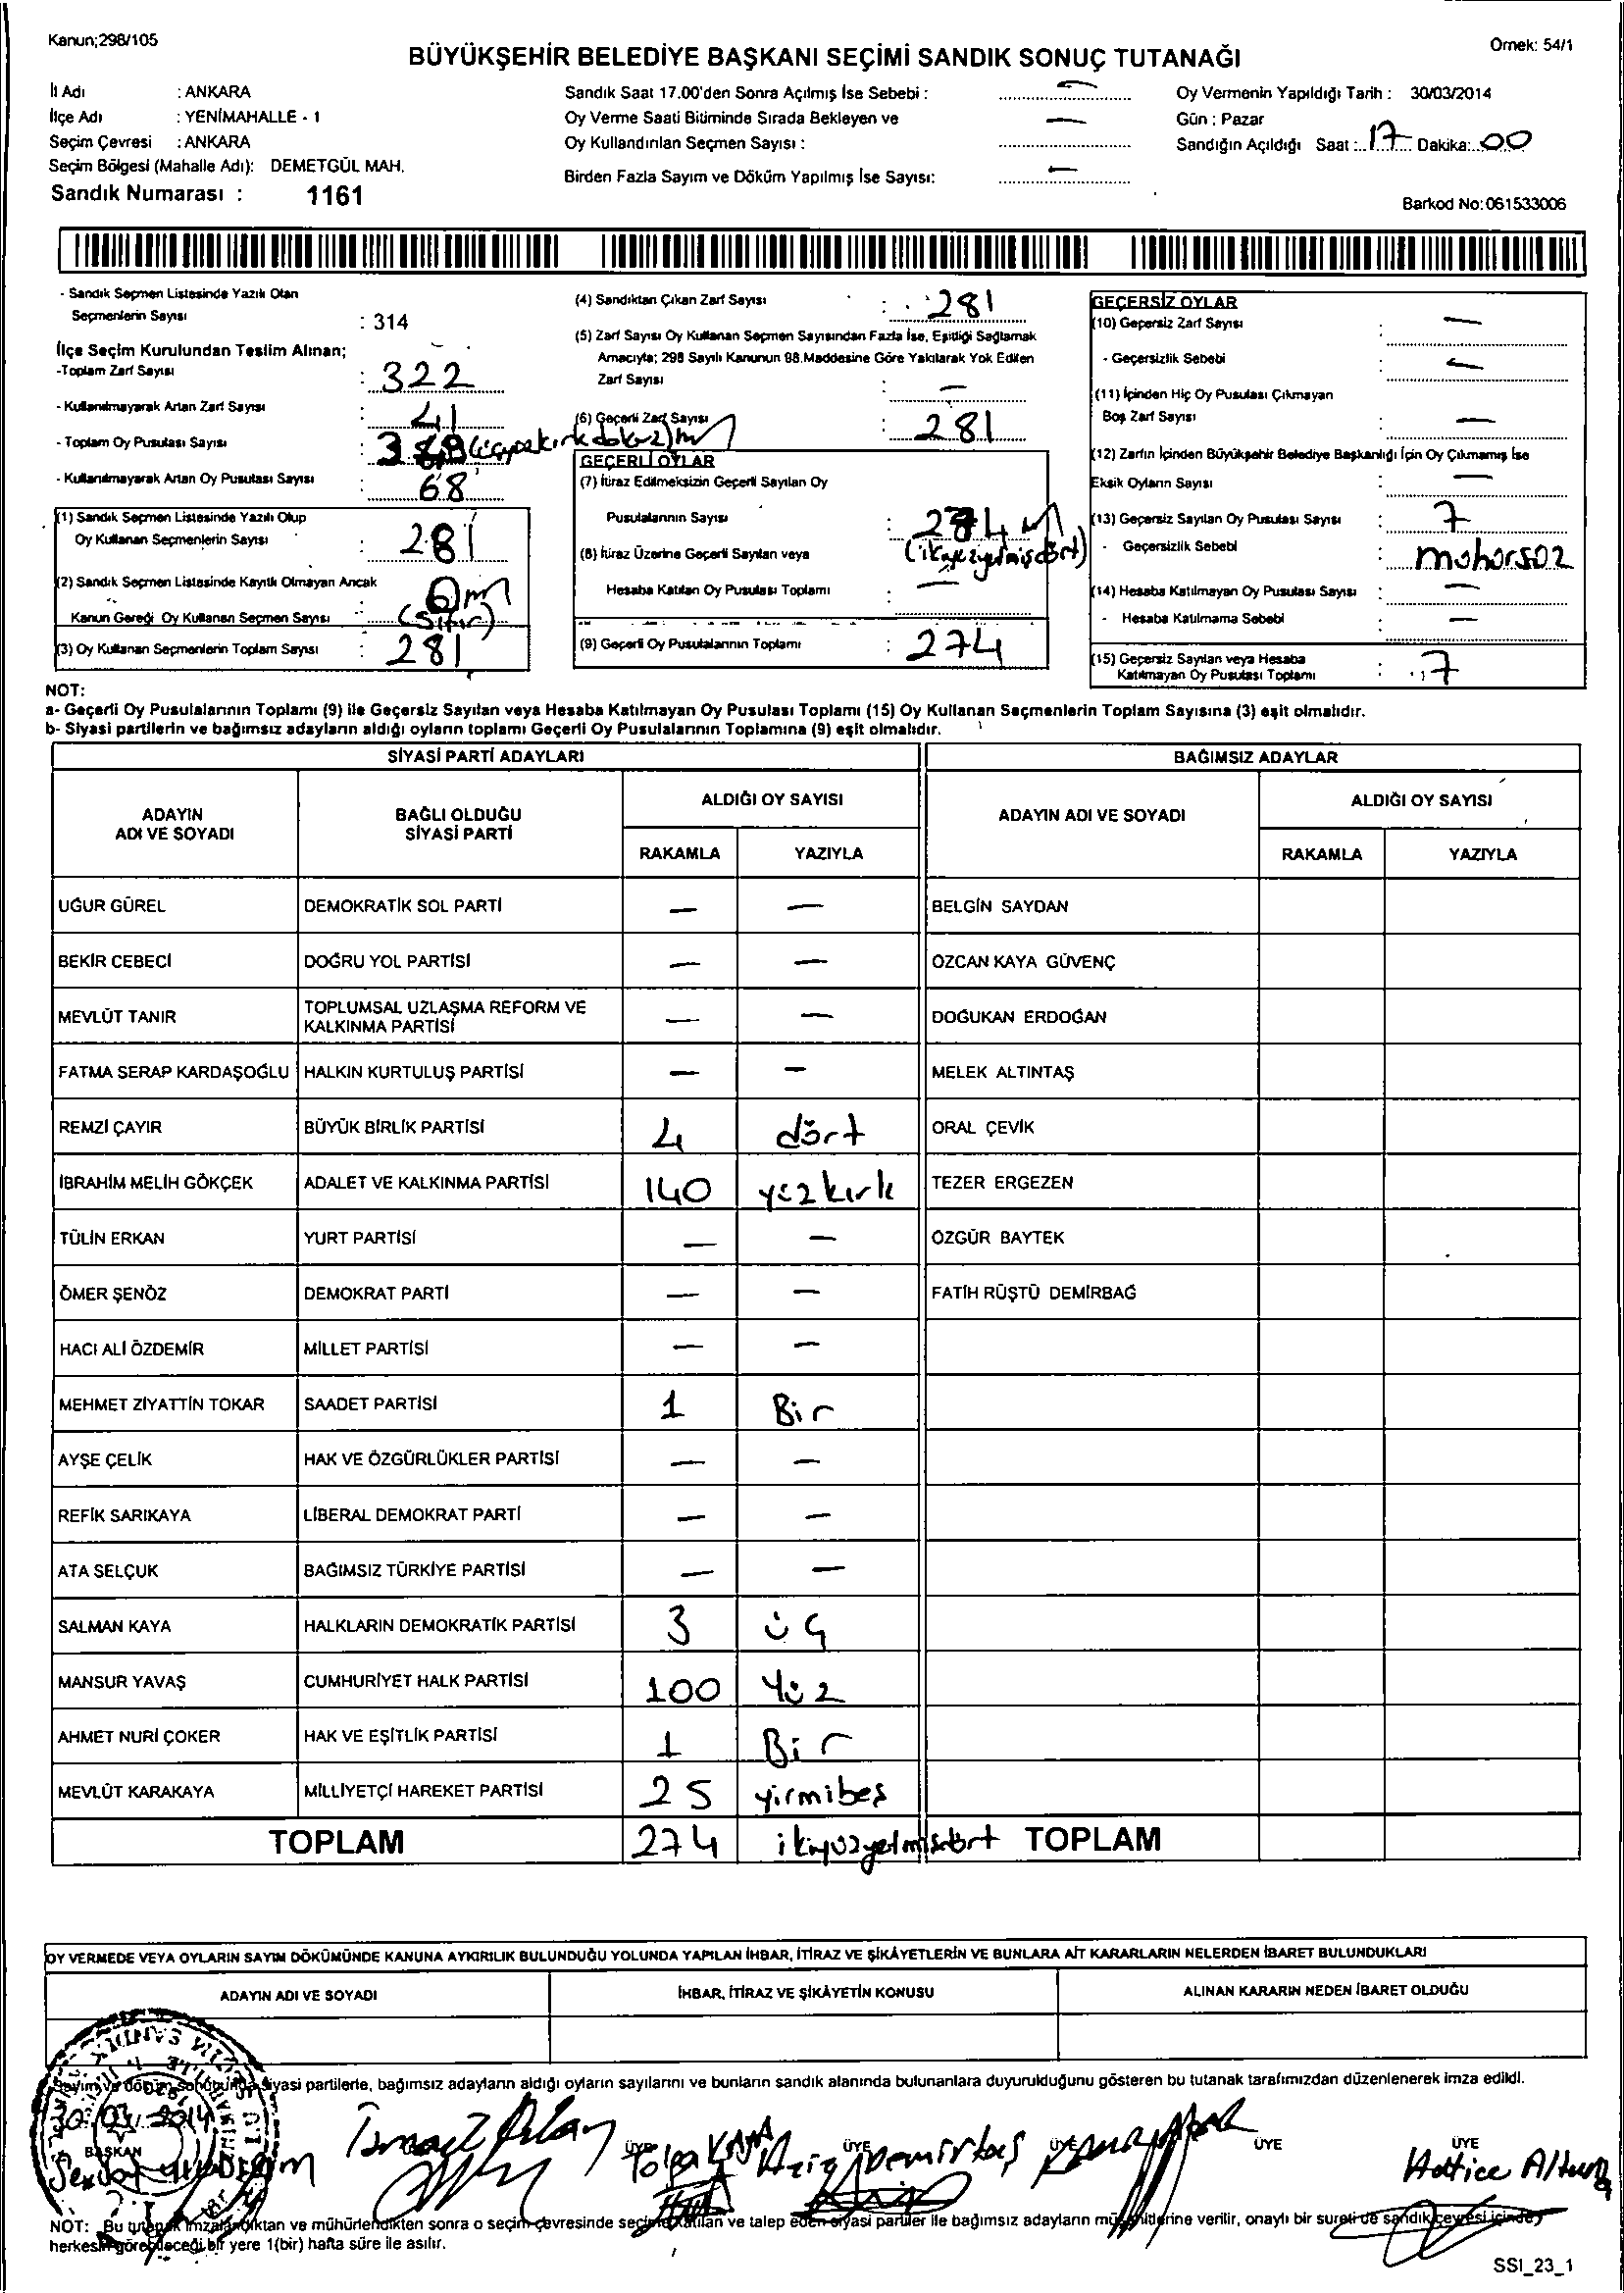 Kanun;298/105
Örnek: 54/1
BÜYÜKŞEHİR BELEDİYE BAŞKANI SEÇİMİ SANDIK SONUÇ TUTANAĞI
İl Adı : ANKARA
İlçe Adı : YENİMAHALLE - 1
Seçim Çevresi : ANKARA
Seçim Bölgesi (Mahalle Adı): DEMETGÜL MAH.
Sandık Numarası : 1161
Sandık Saat 17.00'den Sonra Açılmış İse Sebebi : —
Oy Verme Saati Bitiminde Sırada Bekleyen ve —
Oy Kullandırılan Seçmen Sayısı :
Birden Fazla Sayım ve Döküm Yapılmış İse Sayısı: —
Oy Vermenin Yapıldığı Tarih : 30/03/2014
Gün : Pazar
Sandığın Açıldığı Saat : 17 Dakika: 00
Barkod No:061533006
- Sandık Seçmen Listesinde Yazılı Olan
Seçmenlerin Sayısı : 314
İlçe Seçim Kurulundan Teslim Alınan;
-Toplam Zarf Sayısı : 322
- Kullanılmayarak Artan Zarf Sayısı : 41
- Toplam Oy Pusulası Sayısı :
- Kullanılmayarak Artan Oy Pusulası Sayısı : 68
(1) Sandık Seçmen Listesinde Yazılı Olup
Oy Kullanan Seçmenlerin Sayısı : 281
(2) Sandık Seçmen Listesinde Kayıtlı Olmayan Ancak
Kanun Gereği Oy Kullanan Seçmen Sayısı : 0 (Sıfır)
(3) Oy Kullanan Seçmenlerin Toplam Sayısı : 281
(4) Sandıktan Çıkan Zarf Sayısı : 281
(5) Zarf Sayısı Oy Kullanan Seçmen Sayısından Fazla İse, Eşitliği Sağlamak
Amacıyla; 298 Sayılı Kanunun 98.Maddesine Göre Yakılarak Yok Edilen
Zarf Sayısı : —
(6) Geçerli Zarf Sayısı : 281
GEÇERLİ OYLAR
(7) İtiraz Edilmeksizin Geçerli Sayılan Oy
Pusulalarının Sayısı : 274
(ikiyüzyetmişdört)
(8) İtiraz Üzerine Geçerli Sayılan veya
Hesaba Katılan Oy Pusulası Toplamı : —
(9) Geçerli Oy Pusulalarının Toplamı : 274
GEÇERSİZ OYLAR
(10) Geçersiz Zarf Sayısı : —
- Geçersizlik Sebebi : —
(11) İçinden Hiç Oy Pusulası Çıkmayan
Boş Zarf Sayısı : —
(12) Zarfın İçinden Büyükşehir Belediye Başkanlığı İçin Oy Çıkmamış İse
Eksik Oyların Sayısı : —
(13) Geçersiz Sayılan Oy Pusulası Sayısı : 7
- Geçersizlik Sebebi : mühürsüz
(14) Hesaba Katılmayan Oy Pusulası Sayısı : —
- Hesaba Katılmama Sebebi : —
(15) Geçersiz Sayılan veya Hesaba
Katılmayan Oy Pusulası Toplamı : 7
NOT:
a- Geçerli Oy Pusulalarının Toplamı (9) ile Geçersiz Sayılan veya Hesaba Katılmayan Oy Pusulası Toplamı (15) Oy Kullanan Seçmenlerin Toplam Sayısına (3) eşit olmalıdır.
b- Siyasi partilerin ve bağımsız adayların aldığı oyların toplamı Geçerli Oy Pusulalarının Toplamına (9) eşit olmalıdır.
SİYASİ PARTİ ADAYLARI BAĞIMSIZ ADAYLAR
ADAYIN ADI VE SOYADI BAĞLI OLDUĞU SİYASİ PARTİ ALDIĞI OY SAYISI ADAYIN ADI VE SOYADI ALDIĞI OY SAYISI
RAKAMLA YAZIYLA RAKAMLA YAZIYLA
UĞUR GÜREL DEMOKRATİK SOL PARTİ — — BELGİN SAYDAN
BEKİR CEBECİ DOĞRU YOL PARTİSİ — — ÖZCAN KAYA GÜVENÇ
MEVLÜT TANIR TOPLUMSAL UZLAŞMA REFORM VE KALKINMA PARTİSİ — — DOĞUKAN ERDOĞAN
FATMA SERAP KARDAŞOĞLU HALKIN KURTULUŞ PARTİSİ — — MELEK ALTINTAŞ
REMZİ ÇAYIR BÜYÜK BİRLİK PARTİSİ 4 dört ORAL ÇEVİK
İBRAHİM MELİH GÖKÇEK ADALET VE KALKINMA PARTİSİ 140 yüzkırk TEZER ERGEZEN
TÜLİN ERKAN YURT PARTİSİ — — ÖZGÜR BAYTEK
ÖMER ŞENÖZ DEMOKRAT PARTİ — — FATİH RÜŞTÜ DEMİRBAĞ
HACI ALİ ÖZDEMİR MİLLET PARTİSİ — —
MEHMET ZİYATTİN TOKAR SAADET PARTİSİ 1 Bir
AYŞE ÇELİK HAK VE ÖZGÜRLÜKLER PARTİSİ — —
REFİK SARIKAYA LİBERAL DEMOKRAT PARTİ — —
ATA SELÇUK BAĞIMSIZ TÜRKİYE PARTİSİ — —
SALMAN KAYA HALKLARIN DEMOKRATİK PARTİSİ 3 üç
MANSUR YAVAŞ CUMHURİYET HALK PARTİSİ 100 Yüz
AHMET NURİ ÇOKER HAK VE EŞİTLİK PARTİSİ 1 Bir
MEVLÜT KARAKAYA MİLLİYETÇİ HAREKET PARTİSİ 25 yirmibeş
TOPLAM 274 ikiyüzyetmişdört TOPLAM
OY VERMEDE VEYA OYLARIN SAYIM DÖKÜMÜNDE KANUNA AYKIRILIK BULUNDUĞU YOLUNDA YAPILAN İHBAR, İTİRAZ VE ŞİKÂYETLERİN VE BUNLARA AİT KARARLARIN NELERDEN İBARET BULUNDUKLARI
ADAYIN ADI VE SOYADI İHBAR, İTİRAZ VE ŞİKÂYETİN KONUSU ALINAN KARARIN NEDEN İBARET OLDUĞU
Sayım ve döküm sonucunda siyasi partilerle, bağımsız adayların aldığı oyların sayılarını ve bunların sandık alanında bulunanlara duyurulduğunu gösteren bu tutanak tarafımızdan düzenlenerek imza edildi.
30.03.2014
BAŞKAN ÜYE ÜYE ÜYE ÜYE ÜYE
Tolga Aziz Demirtaş Hatice
NOT: Bu tutanak imzalandıktan ve mühürlendikten sonra o seçim çevresinde seçime katılan ve talep eden siyasi partiler ile bağımsız adayların müşahitlerine verilir, onaylı bir sureti de sandık çevresi içinde
herkesin görebileceği bir yere 1(bir) hafta süre ile asılır.
SSI_23_1